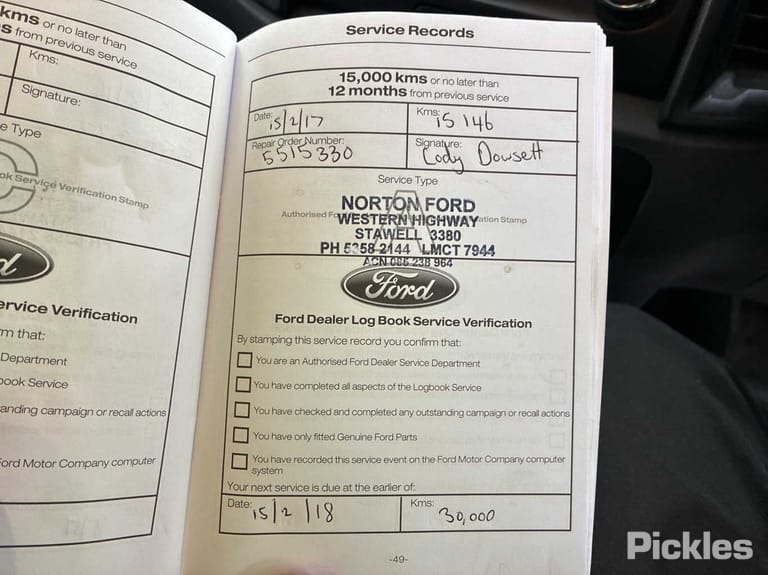 kms or no later than
s from previous service
Kms:
Signature:
e Type
ok Service Verification Stamp
d
ervice Verification
rm that:
Department
book Service
anding campaign or recall actions
Ford Motor Company computer
Service Records
15,000 kms or no later than
12 months from previous service
Date: 15/2/17 Kms: 15 146
Repair Order Number: 5515330 Signature: Cody Dowsett
Service Type
A
NORTON FORD
Authorised Fo WESTERN HIGHWAY ation Stamp
STAWELL 3380
PH 5358 2144 LMCT 7944
ACN 086 238 964
Ford
Ford Dealer Log Book Service Verification
By stamping this service record you confirm that:
You are an Authorised Ford Dealer Service Department
You have completed all aspects of the Logbook Service
You have checked and completed any outstanding campaign or recall actions
You have only fitted Genuine Ford Parts
You have recorded this service event on the Ford Motor Company computer
system
Your next service is due at the earlier of:
Date: 15/2/18 Kms: 30,000
-49-
Pickles